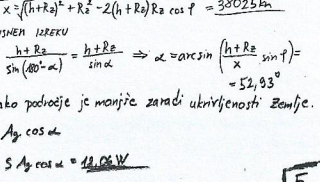 x = √(h+Rz)² + Rz² - 2(h+Rz)Rz cos φ = 38023 km
USNEM IZREKU
(h+Rz)/(sin(180°-α)) = (h+Rz)/(sin α) ⇒ α = arcsin ((h+Rz)/x sin φ) =
= 52,93°
ako področje je manjše zaradi ukrivljenosti zemlje.
Ag cos α
S Ag cos α = 12.06 W
√5